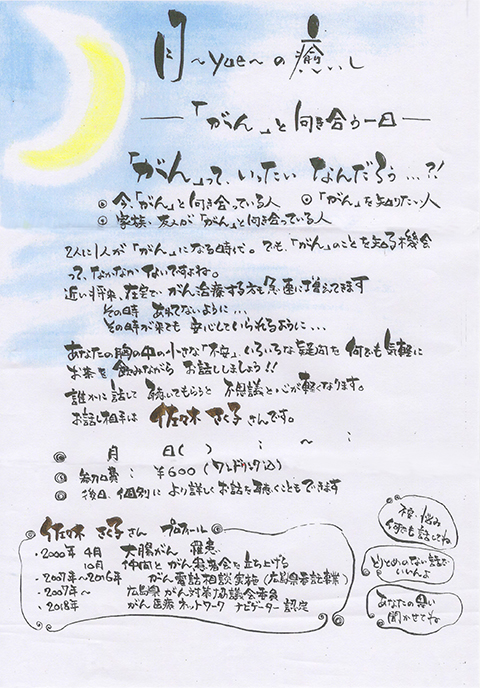 月 ~yue~ の 癒いし
―「がん」と向き合う一日―
「がん」って、いったい なんだろう…?!
◎ 今、「がん」と向き合っている人 ◎「がん」を知りたい人
◎ 家族、友人が「がん」と向き合っている人
2人に1人が「がん」になる時代。でも、「がん」のことを知る機会
って、なかなかないですよね。
近い将来、在宅で がん治療する方も急速に増えてきます
その時 あわてないように…
その時が来ても 安心していられるように…
あなたの胸の中の小さな「不安」、いろいろな疑問を 何でも気軽に
お茶を飲みながら お話ししましょう!!
誰かに話して 聴いてもらうと 不思議と心が軽くなります。
お話し相手は 佐々木 さく子さんです。
◎ 月 日( ) : ~ :
◎ 参加費: ¥600(ワンドリンク込)
◎ 後日、個別に より詳しくお話を聴くこともできます
佐々木 さく子さん プロフィール
・2000年 4月 大腸がん 罹患
10月 仲間と がん患者会を立ち上げる
・2007年~2016年 がん電話相談実施(広島県委託事業)
・2007年~ 広島県がん対策協議会委員
・2018年 がん医療ネットワーク ナビゲーター 認定
不安、悩み
何でも話してね
とりとめのない話で
いいんよ
あなたの思い
聞かせてね